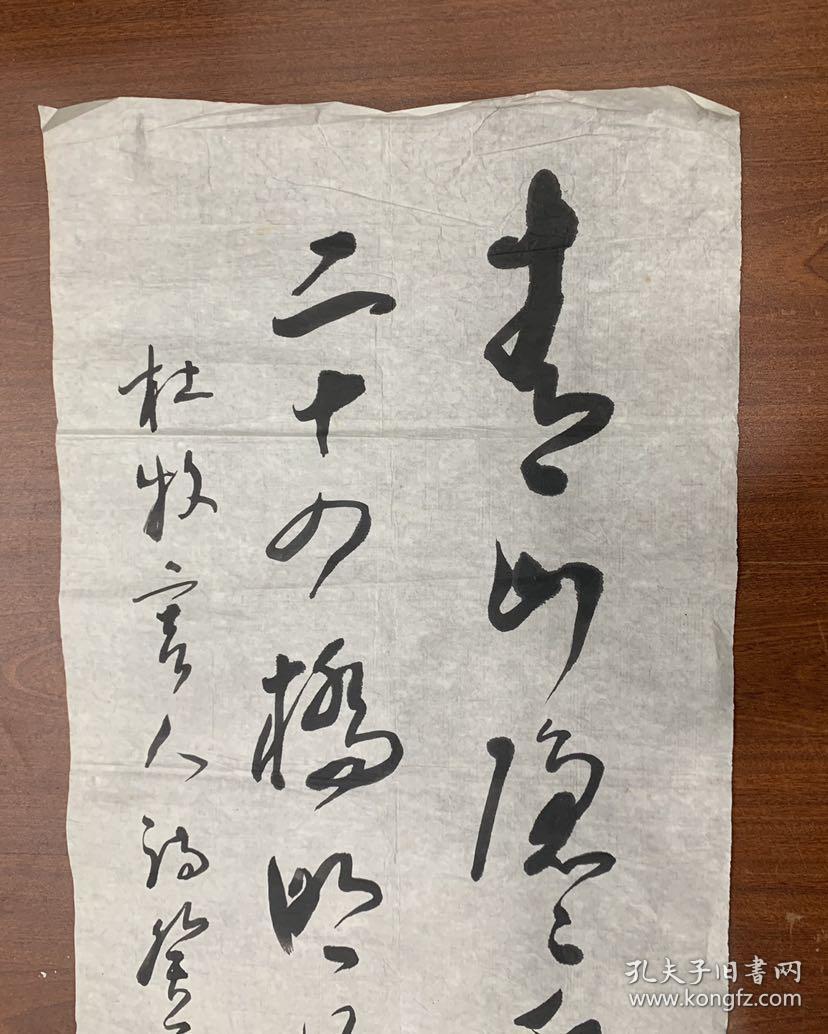 青山隐〻
二十四橋明
杜牧寄人诗癸
孔夫子旧書网
www.kongfz.com